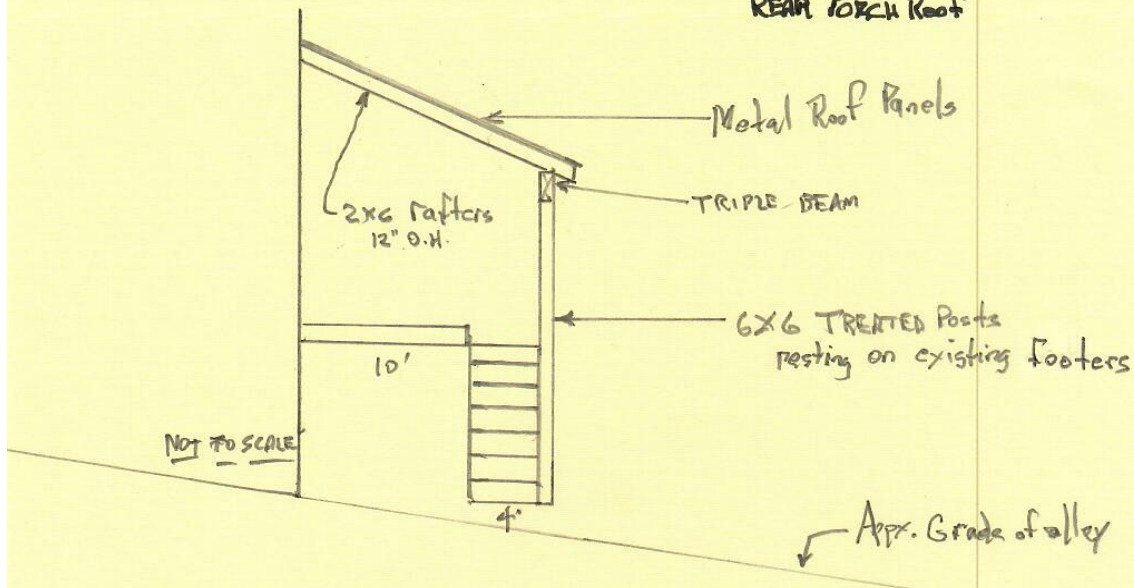 REAR PORCH Roof
Metal Roof Panels
2x6 rafters
12" O.H.
TRIPLE BEAM
6X6 TREATED Posts
resting on existing footers
10'
NOT TO SCALE
4'
Appx. Grade of alley